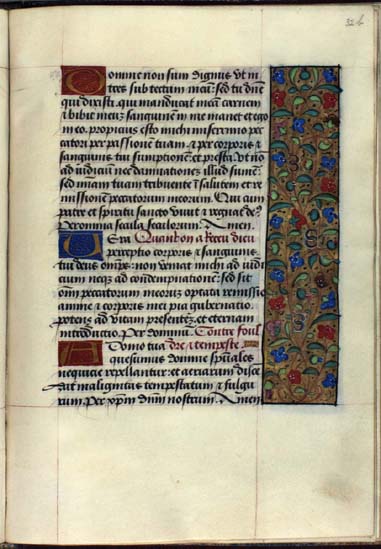 32 b
Domine non sum dignus vt in
tres sub tectum meū: sed tu dñe
qui dixisti. qui manducat meā carnem
⁊ bibit meuz sanguinē in me manet et ego
in eo. propicius esto michi misero pec
catori per passionē tuam. ⁊ per corporis ⁊
sanguinis tui sumptionē. et presta vt nō
ad iudiciū nec damnationes illud sumā:
sed iniam tuam tribuente ī salutem et re
missionem peccatorum meorum. Qui cum
patre et spiritu sancto viuit ⁊ regnat de9
Per omnia secula seculorum. Amen
Vera Quant on a receu dieu
perceptio corporis ⁊ sanguinis
tui deus omps: non veniat michi ad iudi
cium neqz ad condempnationē: sed sit
oīm peccatorum meoruz optata remissio
anime ⁊ corporis mei pia gubernatio
potens ad vitam presentē. et eternam
introductio. Per dominū. Contre foul
A domo tua dre ⁊ tempeste
quesumus domine spūales
nequicie repellantur: et aeriarum disce
dat malignitas tempestatum ⁊ fulgu
rum. Per xpm dnm nostrum. Amen